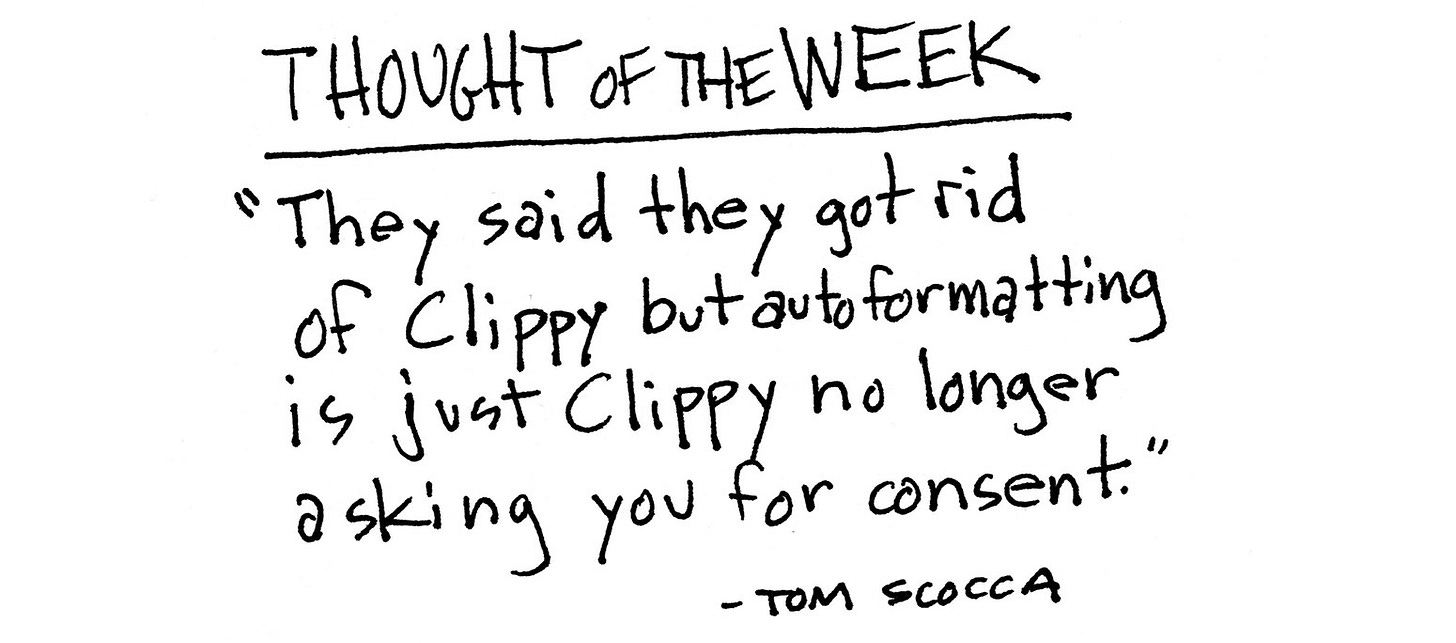 THOUGHT OF THE WEEK
"They said they got rid
of Clippy but autoformatting
is just Clippy no longer
asking you for consent."
- TOM SCOCCA